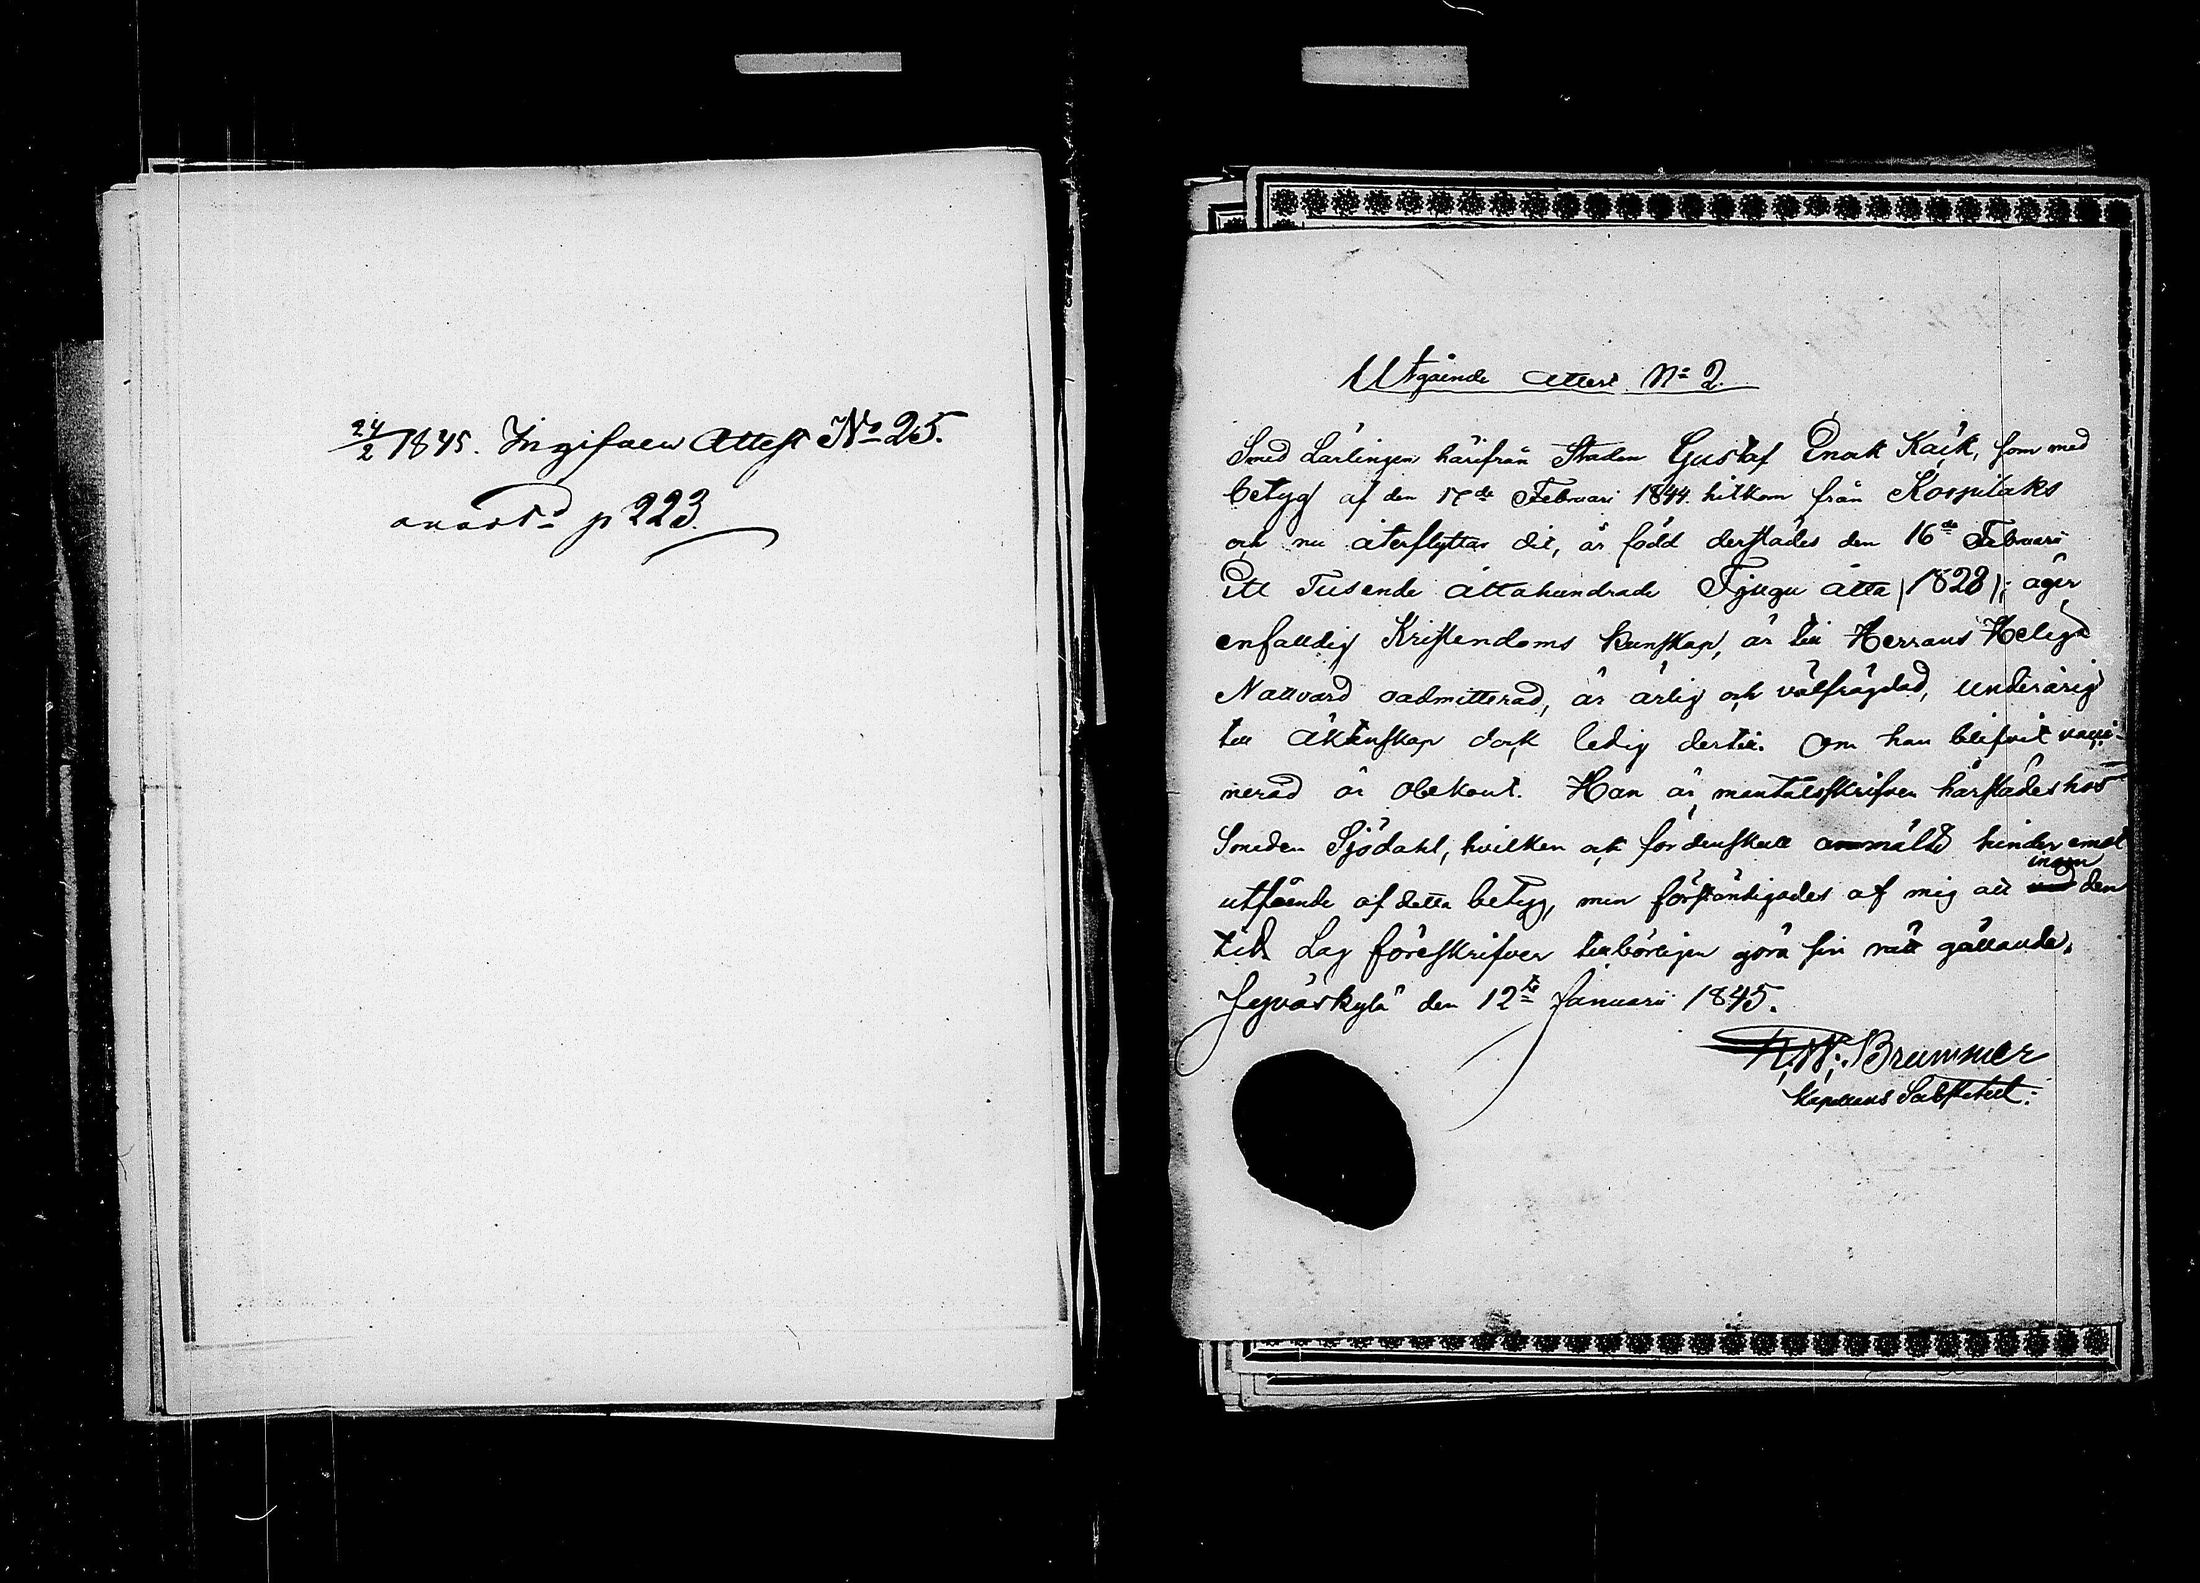 24/2 1845. Ingifven Attest No 25.
p 223.
Utgående Attest No 2.
Smed Lärlingen härifrån Staden Gustaf Enok Kaik, som med
betyg af den 17de Februari 1844 hitkom från Korpilaks
och nu återflyttar dit, är född derstädes den 16de Februari
Ett Tusende Åttahundrade Tjugu åtta (1828); äger
enfalldig Kristendoms kunskap, är till Herrans Heliga
Nattvard oadmitterad, är ärlig och välfrägdad, underårig
till äktenskap dock ledig dertill. Om han blifvit vacci-
nerad är obekant. Han är mantalsskrifven härstädes hos
Smeden Sjödahl, hvilken ock fördenskull anmälde hinder emot
utfående af detta betyg, men förständigades af mig att inom den
tid Lag föreskrifver tillbörligen göra sin rätt gällande.
Jyväskylä den 12te Januarii 1845.
Brummer
Kapellans Substitut.